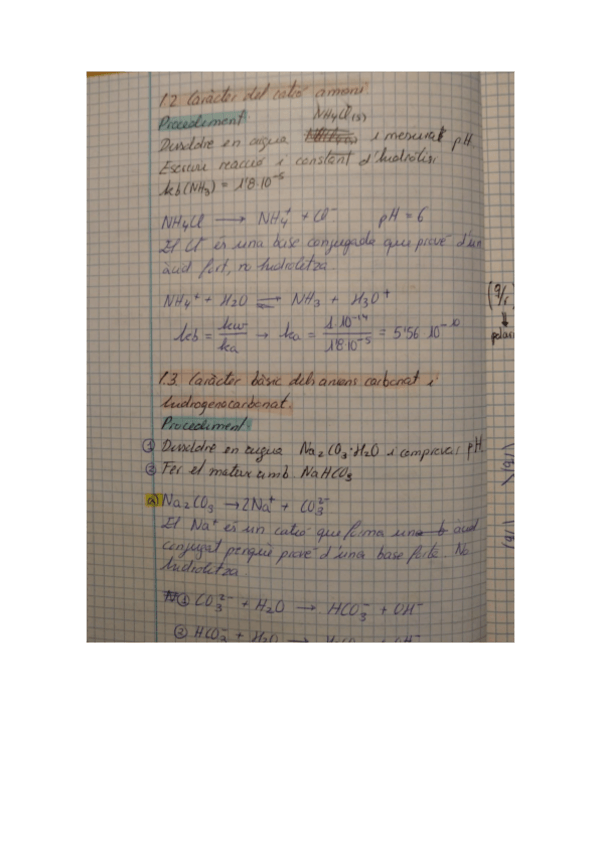 1.2 Caràcter del catió amoni.
Procediment:
NH₄Cl(s)
Dissoldre en aigua i mesurar pH.
Escriure reacció i constant d'hidròlisi.
kb(NH₃) = 1'8·10⁻⁵
NH₄Cl → NH₄⁺ + Cl⁻ pH = 6
El Cl⁻ és una base conjugada que prové d'un
àcid fort, no hidrolitza.
NH₄⁺ + H₂O ⇌ NH₃ + H₃O⁺
kb = kw/ka → ka = 1·10⁻¹⁴/1'8·10⁻⁵ = 5'56·10⁻¹⁰
1.3. Caràcter bàsic dels anions carbonat i
hidrogenocarbonat.
Procediment:
① Dissoldre en aigua Na₂CO₃·H₂O i comprovar pH.
② Fer el mateix amb NaHCO₃
a) Na₂CO₃ → 2Na⁺ + CO₃²⁻
El Na⁺ és un catió que forma una b àcid
conjugat perquè prové d'una base forta. No
hidrolitza.
① CO₃²⁻ + H₂O → HCO₃⁻ + OH⁻
② HCO₃⁻ + H₂O →